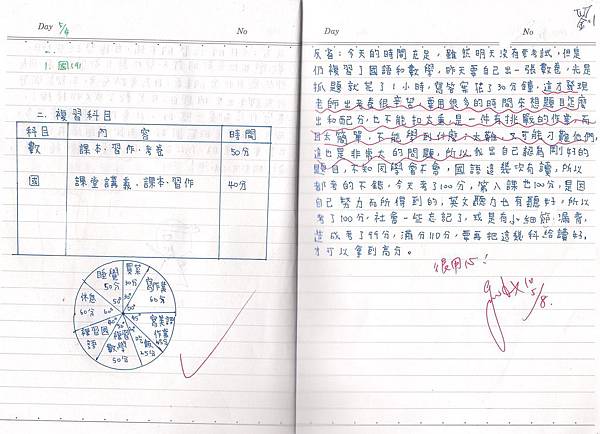 Day 5/4 No
1. 國(9)
二、複習科目
科目 內容 時間
數 課本、習作、考卷 50分
國 課堂講義、課本、習作 40分
睡覺
50分
買菜
30分
寫作業
60分
休息
60分
寫英語
作業
複習國
語
複習
數學
50分
吃飯
25分
Day No
反省:今天的時間充足,雖然明天沒有要考試,但是
仍複習了國語和數學,昨天要自己出一張數卷,光是
抓題就花了1小時,寫答案花了30分鐘,這才發現
老師出考卷很辛苦,要用很多的時間來想題目怎麼
出和配分,也不能扣太重,是一件有挑戰的作業,而
且太簡單,不能學到什麼,太難,又可能才難他們,
這也是非常大的問題,所以我出自己認為剛好的
題目,不知同學會不會,國語這幾次有讀,所以
都考的不錯,今天考了100分,第八課也100分,是因
自己努力而所得到的,英文聽力也有聽好,所以
考了100分,社會一些忘記了,或是有小細節漏背,
造成考了99分,滿分110分,要再把這幾科給讀好,
才可以拿到高分。
很用心!
5/8.